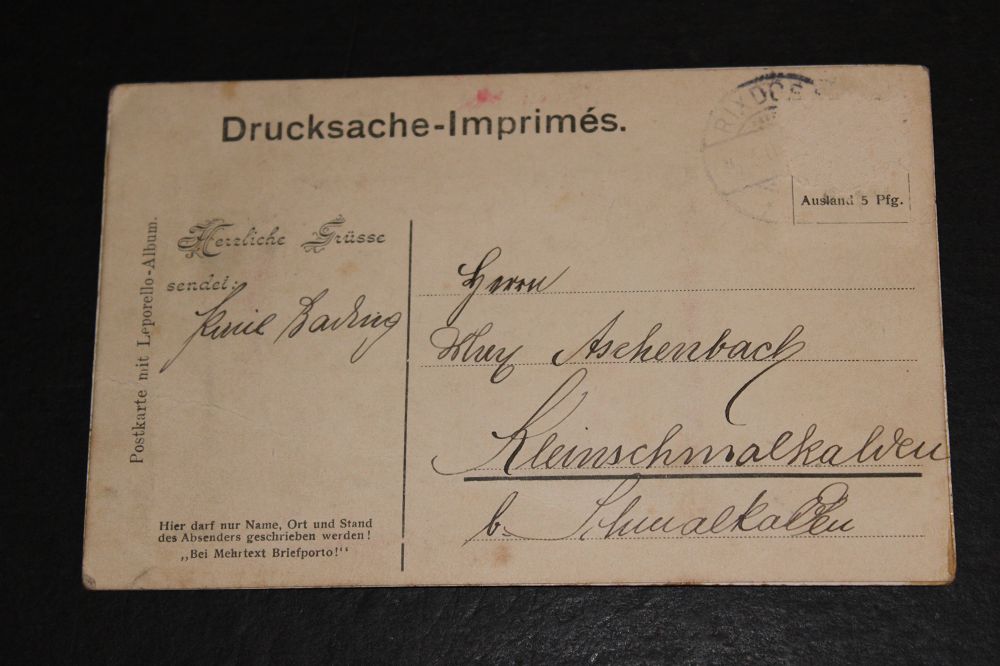 Drucksache-Imprimés.
RIXDO
Ausland 5 Pfg.
Postkarte mit Leporello-Album.
Herzliche Grüsse
sendet:
Bading
Herrn
Max Aschenbach
Kleinschmalkalden
b. Schmalkalden
Hier darf nur Name, Ort und Stand
des Absenders geschrieben werden!
„Bei Mehrtext Briefporto!“